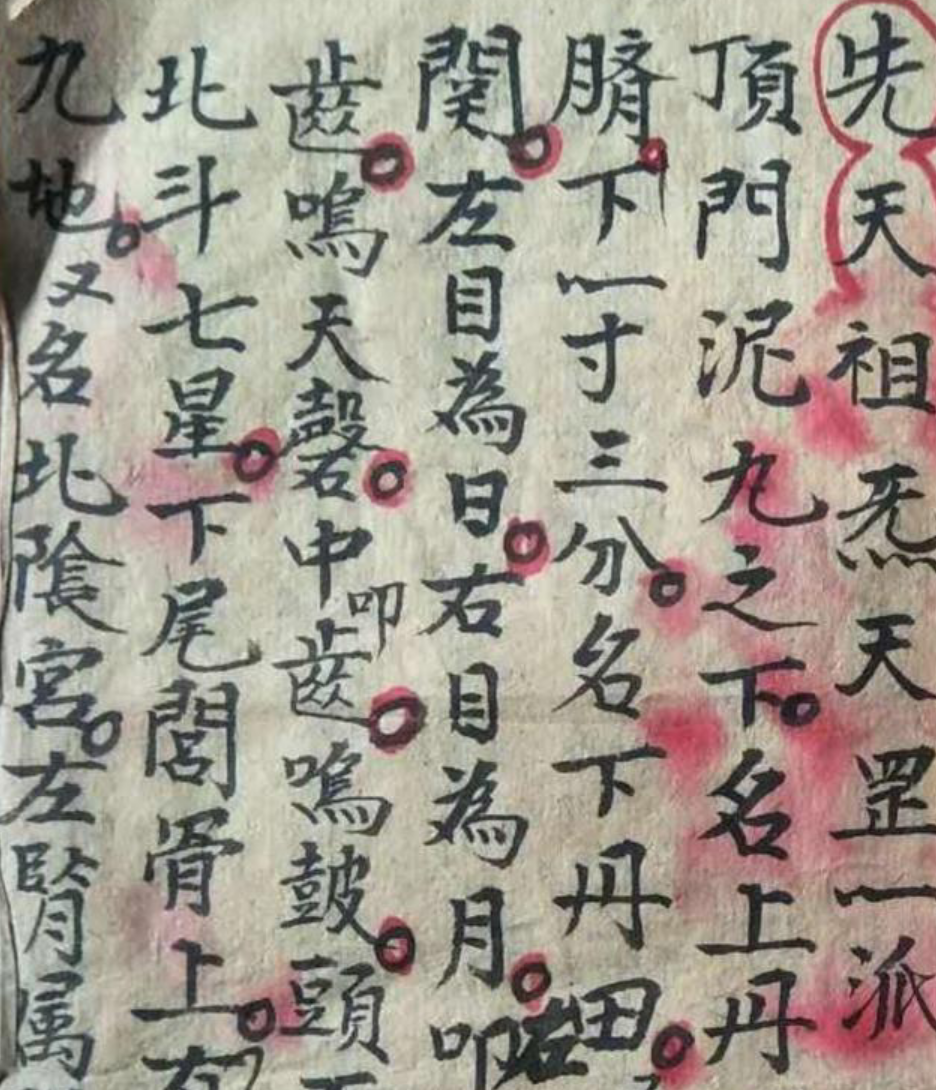 先天祖炁天罡一派
頂門泥九之下。名上丹
臍下一寸三分。名下丹田。
関。左目為日。右目為月。叩左
齒。鳴天磬。中叩齒。鳴鼓。頭
北斗七星。下尾閭骨上。右
九地。又名北陰宮。左腎属